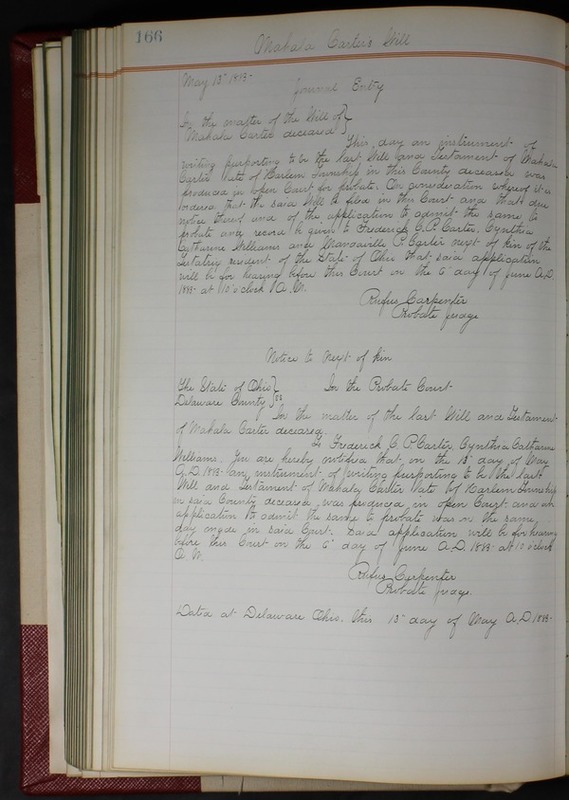 166
Mahala Carter's Will
May 15" 1883-
Journal Entry
In the matter of the Will of }
Mahala Carter deceased }
This day an instrument of
writing purporting to be the last Will and Testament of Mahala
Carter late of Harlem Township in this County deceased was
produced in open Court for probate. On consideration whereof it is
ordered that the said Will be filed in this Court and that due
notice thereof and of the application to admit the same to
probate and record be given to Frederick C. P. Carter, Cynthia
Catharine Williams and Mandaville P. Carter next of kin of the
testatrix resident of the State of Ohio that said application
will be for hearing before this Court on the 6" day of June A.D.
1883- at 10 o'clock A.M.
Rufus Carpenter
Probate Judge
Notice to Next of Kin
The State of Ohio }
Delaware County } ss
In the Probate Court-
In the matter of the last Will and Testament
of Mahala Carter deceased,
To Frederick C. P. Carter, Cynthia Catharine
Williams. You are hereby notified that on the 15" day of May
A.D. 1883- an instrument of writing purporting to be the last
Will and Testament of Mahala Carter late of Harlem Township
in said County deceased, was produced in open Court and an
application to admit the same to probate was on the same
day made in said Court. Said application will be for hearing
before this Court on the 6" day of June A.D. 1883- at 10 o'clock
A.M.
Rufus Carpenter
Probate Judge.
Dated at Delaware Ohio. this 15" day of May A.D 1883-